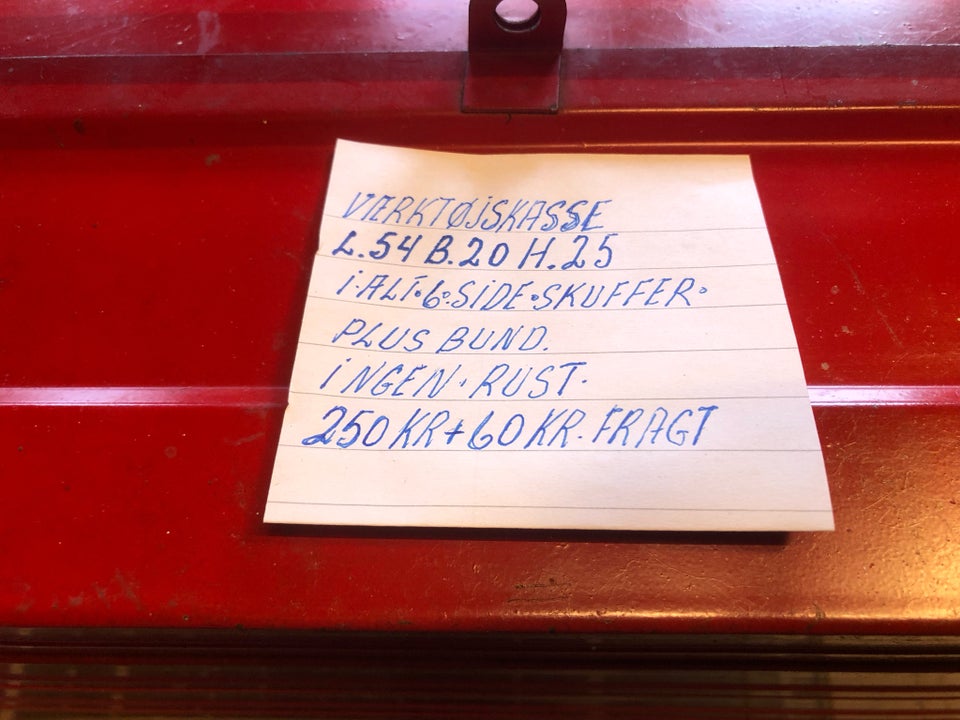 VÆRKTØJSKASSE
L.54 B.20 H.25
i·ALT·6·SiDE·SKUFFER·
PLUS BUND.
iNGEN·RUST·
250 KR + 60 KR. FRAGT